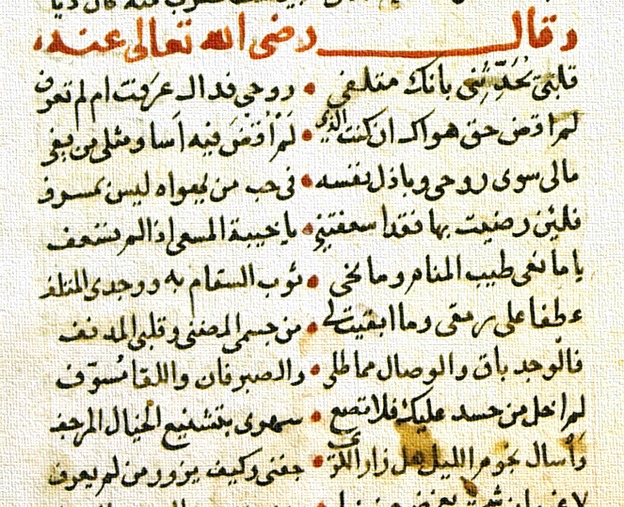 وقال رضى الله تعالى عنه
قلبى يُحَدّثُنى بانك متلفى • روحى فداك عرفت ام لم تعرف
لم اقض حق هواك ان كنت الذى • لَمْ اقضَ فيه اَسا ومثلى من يفى
مالى سوى روحى وباذل نفسه • فى حب من يهواه ليس بمسرف
فلئن رضيت بها فقد اسعفتنى • يا خيبة المسعى اذا لم تسعف
يا مانعى طيب المنام ومانحى • ثوب السقام به ووجدى المتلف
عطفا على رمقى وما ابقيت لى • من جسمى المضنى وقلبى المدنف
فالوجد باق والوصال مماطلى • والصبر فان واللقا مُسوّف
لم اخل من حسد عليك فلا تضع • سهرى بتشنيع الخيال المرجف
وَاْسال نجوم الليل هل زار الكرى • جفنى وكيف يزور من لم يعرف